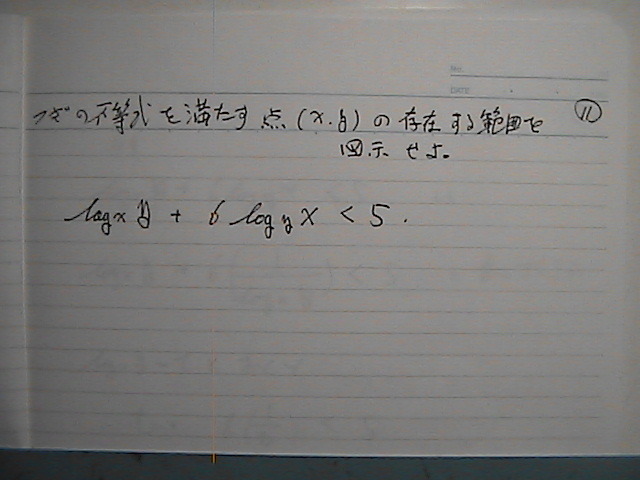 No.
DATE
つぎの不等式を満たす点(x.y)の存在する範囲を ⑪
図示せよ。
log_x y + 6 log_y x < 5.